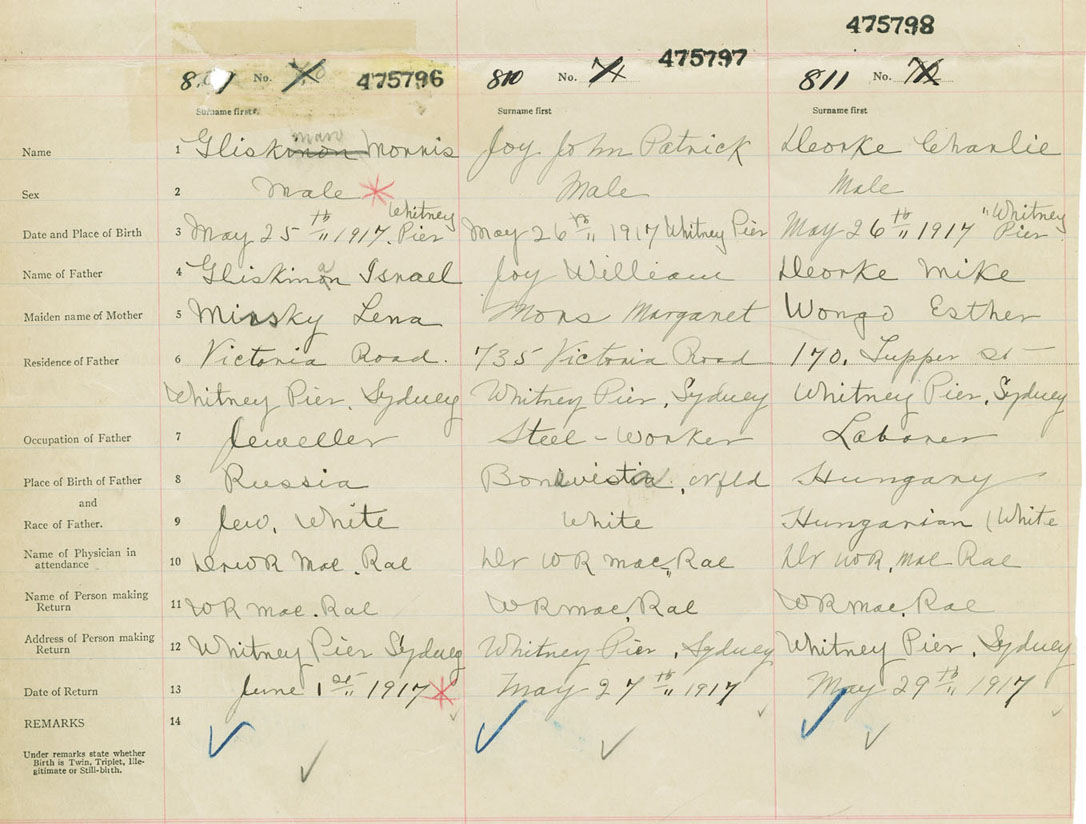 475798
475797
8 No. 475796 810 No. 71 811 No.
Surname first. Surname first Surname first
man
Name 1 Gliskinon Morris Joy John Patrick Deorke Charlie
Sex 2 Male * Male Male
Whitney "Whitney
Date and Place of Birth 3 May 25th 1917. Pier May 26th 1917 Whitney Pier May 26th 1917 Pier
Name of Father 4 Gliskman Israel Joy William Deorke Mike
Maiden name of Mother 5 Minsky Lena Mors Margaret Wongo Esther
Residence of Father 6 Victoria Road. 735 Victoria Road 170. Tupper St
Whitney Pier. Sydney Whitney Pier, Sydney Whitney Pier, Sydney
Occupation of Father 7 Jeweller Steel-Worker Laborer
Place of Birth of Father 8 Russia Bonavista, Nfld Hungary
and
Race of Father. 9 Jew. White White Hungarian (White
Name of Physician in
attendance 10 Dr WR Mac. Rae Dr WR Mac, Rae Dr WR. Mac Rae
Name of Person making
Return 11 WR Mac. Rae WR Mac, Rae WR Mac. Rae
Address of Person making
Return 12 Whitney Pier Sydney Whitney Pier, Sydney Whitney Pier, Sydney
Date of Return 13 June 1st 1917 * May 27th 1917 May 29th 1917
REMARKS 14
Under remarks state whether
Birth is Twin, Triplet, Ille-
gitimate or Still-birth.